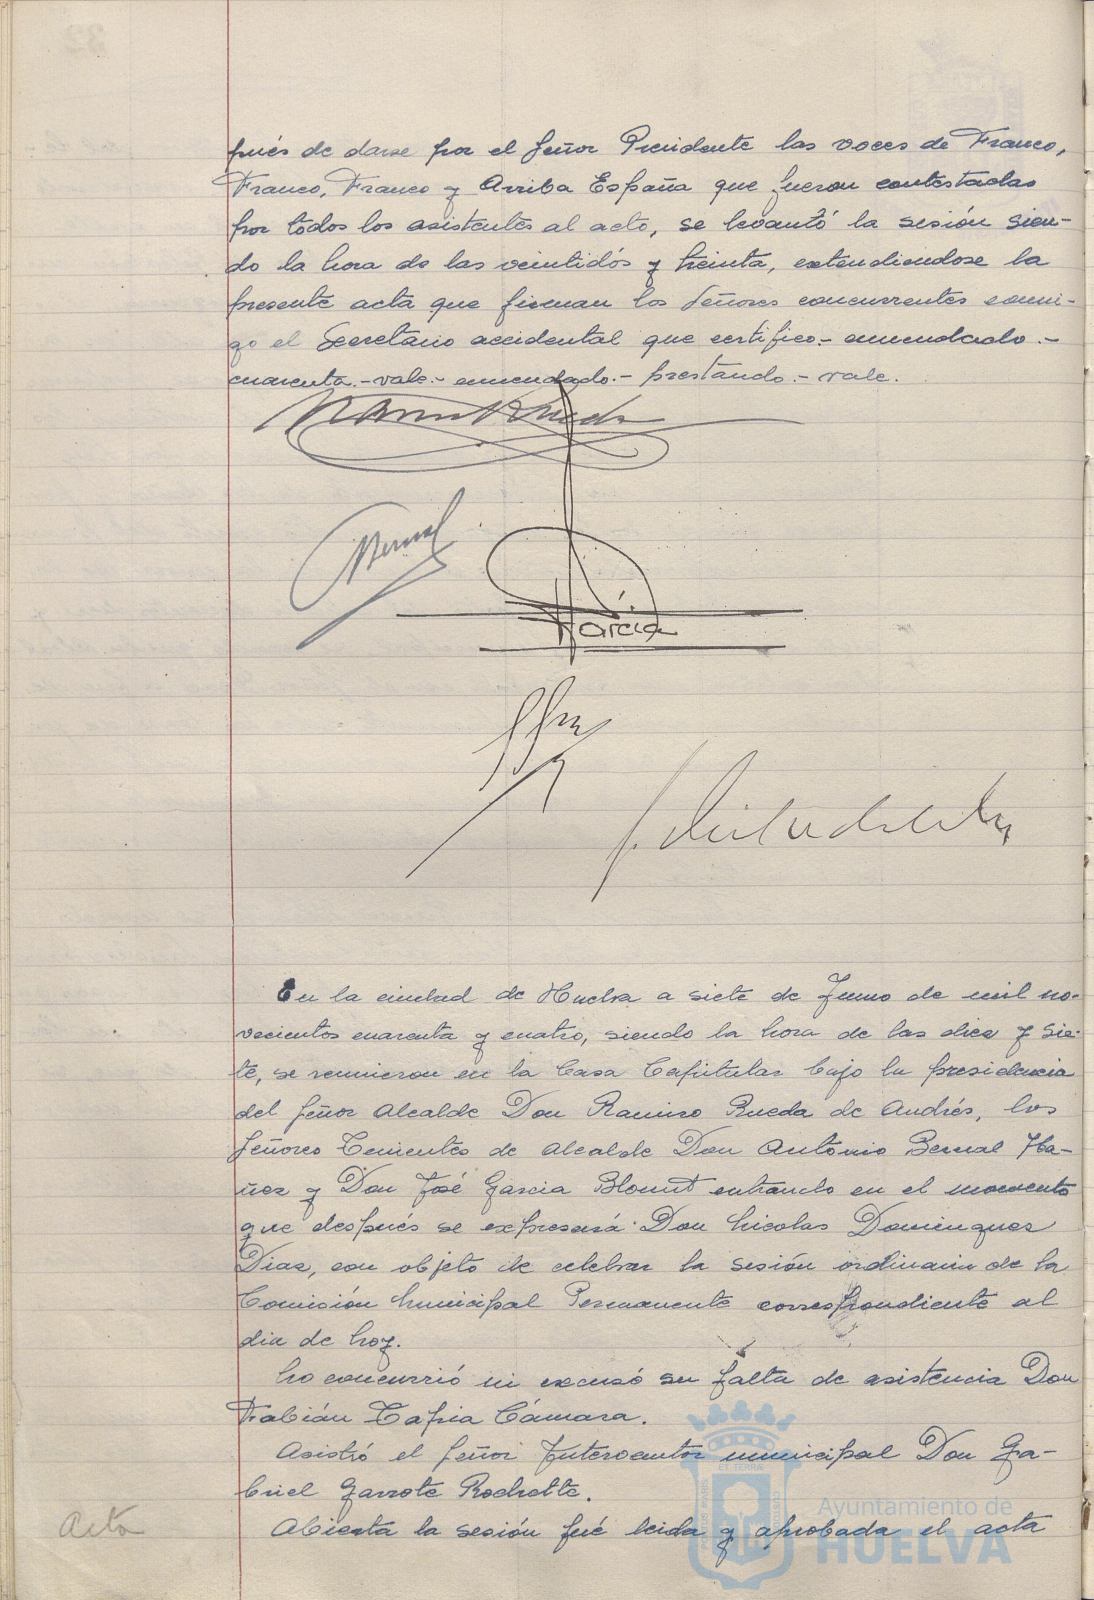 pués de darse por el Señor Presidente las voces de Franco,
Franco, Franco y Arriba España que fueron contestadas
por todos los asistentes al acto, se levantó la sesión sien-
do la hora de las veintidós y treinta, extendiendose la
presente acta que firman los Señores concurrentes conmi-
go el Secretario accidental que certifico.- enmendado.-
cuarenta.- vale.- enmendado.- prestando.- vale.
Bernal
García
En la ciudad de Huelva a siete de Junio de mil no-
vecientos cuarenta y cuatro, siendo la hora de las diez y sie-
te, se reunieron en la Casa Capitular bajo la presidencia
del Señor Alcalde Don Ramiro Rueda de Andrés, los
Señores Tenientes de Alcalde Don Antonio Bernal Ya-
ñez y Don José Garcia Blount entrando en el momento
que después se expresará Don Nicolas Dominguez
Diaz, con objeto de celebrar la sesión ordinaria de la
Comisión Municipal Permanente correspondiente al
dia de hoy.
No concurrió ni excusó su falta de asistencia Don
Fabián Tapia Cámara.
Asistió el Señor Interventor municipal Don Ga-
briel Garrote Rochette.
Acta
Abierta la sesión fué leida y aprobada el acta
Ayuntamiento de
HUELVA